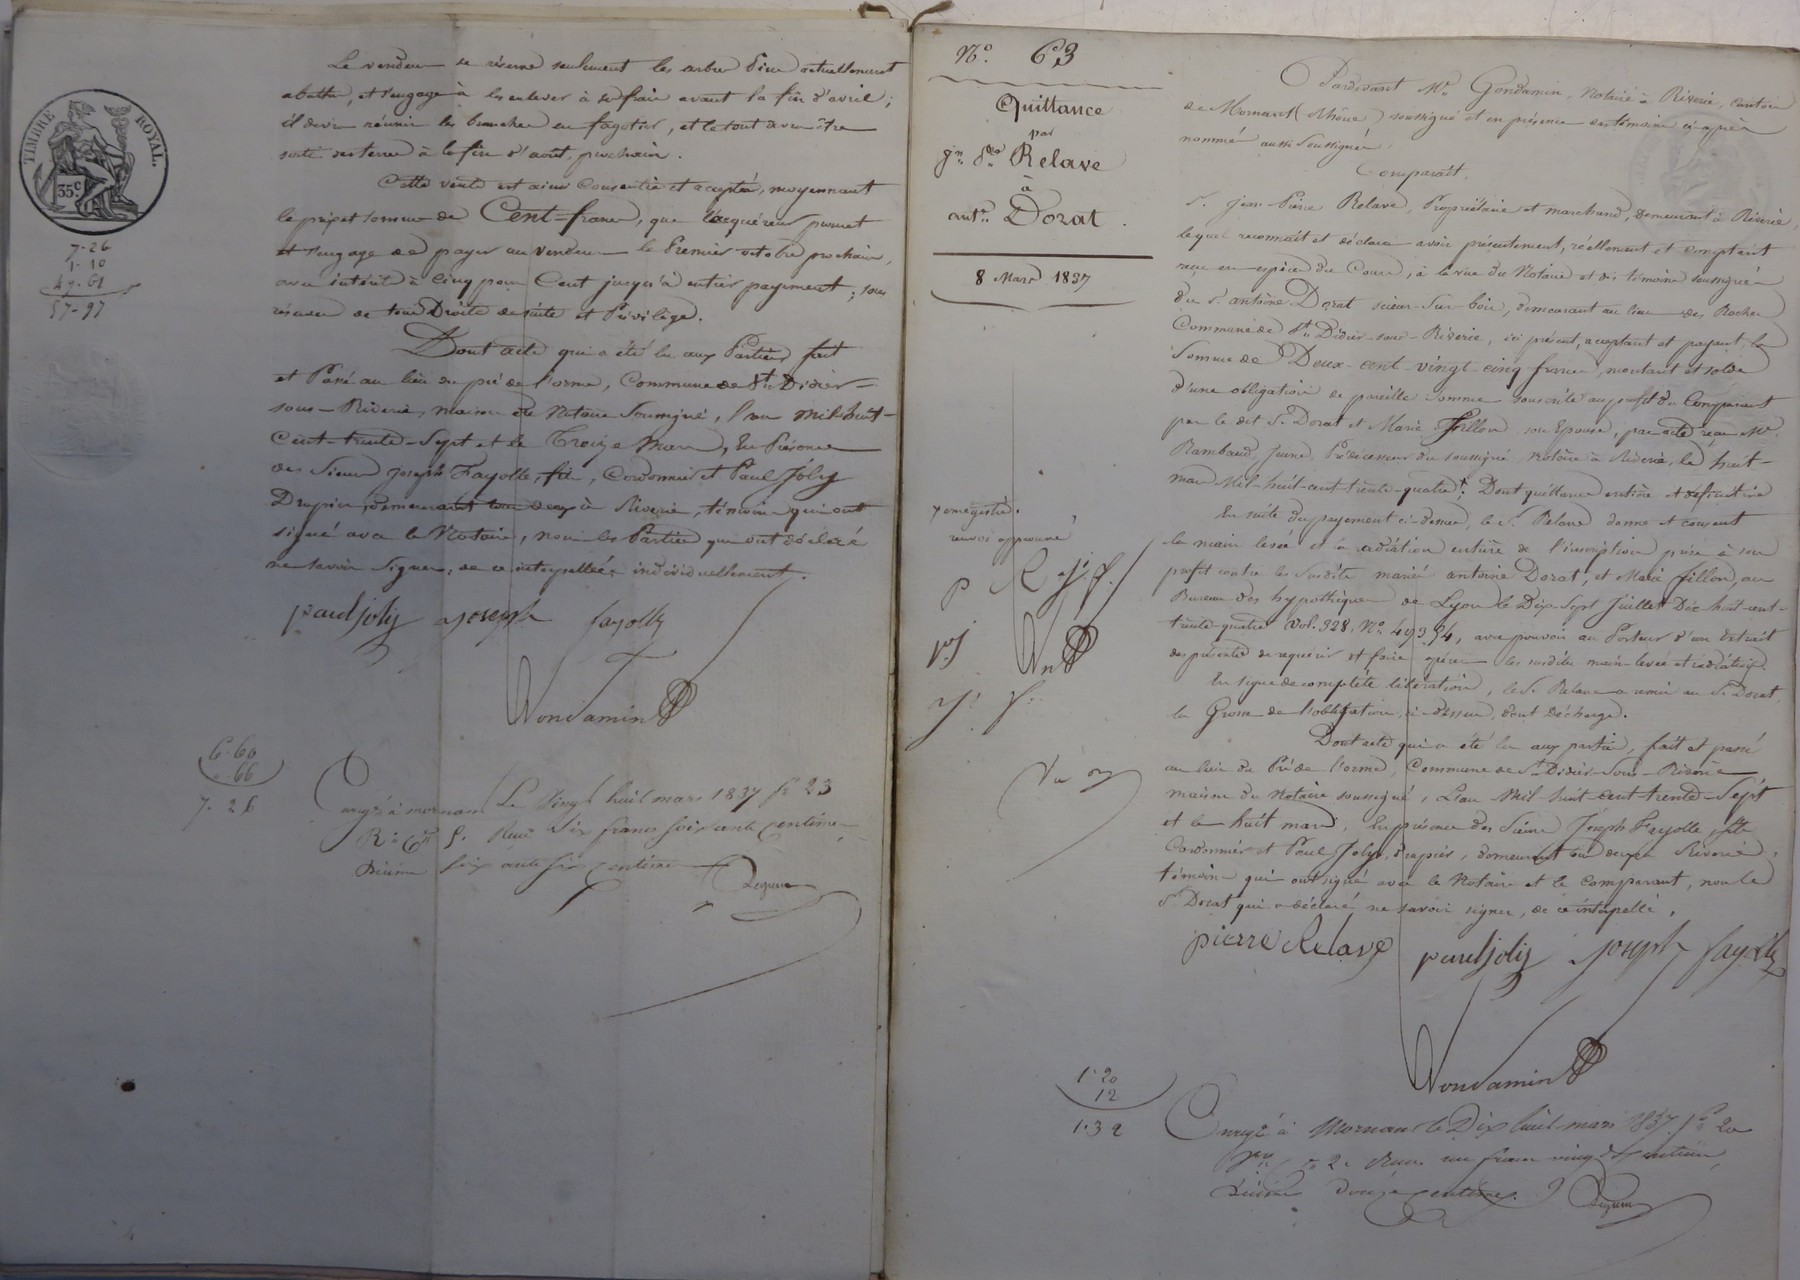 Le vendeur se réserve seulement les arbres actuellement
abattu, et s'engage à les enlever à ses frais avant la fin d'avril;
il devra réunir les branches en fagotier, et le tout devra être
sorti des terres à la fin d'août, prochain.
Cette vente est ainsi consentie et acceptée, moyennant
le prix et somme de Cent-francs, que l'acquéreur promet
et s'engage de payer au vendeur le Premier octobre prochain,
avec intérêt à cinq pour Cent jusqu'à entier payement; sous
réserve de tous Droits de suite et Privilège.
Dont acte qui a été lu aux Parties, fait
et Passé au lieu du pré de l'orme, Commune de St. Didier-
sous-Riverie, maison du Notaire Soussigné, l'an mil-huit-
Cent-trente-Sept et le Treize Mars, En Présence
des Sieurs Joseph Fayolle, fils, Cordonnier et Paul Joly
Drapier, Demeurant tous deux à Riverie, témoins qui ont
signé avec le Notaire, non les Parties qui ont déclaré
ne savoir signer, de ce interpellées individuellement.
paul joly joseph fayolle
Gondamin
TIMBRE ROYAL.
35c
7-26
1-10
49-61
57-97
6-60
66
7-26
Enregé à mornant Le Vingt huit mars 1837 fo 23
Ro Cses 5. Reçu Six francs soixante centimes
Décime soixante six centimes
No. 63
Quittance
par
Jn. Pre Relave
à
Antne Dorat.
8 Mars 1837
× enregistré.
renvoi approuvé
P R
J. f.
P J
J. f.
Vu
Pardevant Me. Gondamin, Notaire à Riverie, canton
de Mornant (Rhône) soussigné et en présence des témoins ci-après
nommés aussi Soussignés,
Comparaît.
S. Jean-Pierre Relave, Propriétaire et marchand, demeurant à Riverie,
lequel reconnaît et déclare avoir présentement, réellement et comptant
reçu en espèces du Cours, à la vue du Notaire et des témoins soussignés
du S. antoine Dorat scieur-sur-bois, demeurant au lieu des Roches
Commune de St. Didier-sous-Riverie, ici présent, acceptant et payant la
Somme de Deux-cent-vingt-cinq francs, montant et solde
d'une obligation de pareille somme souscrite au profit du Comparant
par le dit S. Dorat et Marie Fillon son Epouse, par acte reçu Me.
Rambaud Jeune, Prédécesseur du soussigné, Notaire à Riverie, le huit-
mars Mil-huit-cent-trente-quatre ×. Dont quittance entière et définitive
En suite du payement ci-dessus, le S. Relave donne et consent
la main levée et la radiation entière de l'inscription prise à son
profit contre les susdits mariés antoine Dorat, et Marie fillon, au
Bureau des hypothèques de Lyon le Dix-Sept Juillet Dix-huit-cent-
trente-quatre Vol. 328, No. 493.54, avec pouvoir au Porteur d'un extrait
des présentes de requérir et faire opérer les susdites main-levée et radiation.
En signe de complète libération, le S. Relave a remis au S. Dorat
la Grosse de l'obligation ci-dessus, dont décharge.
Dont acte qui a été lu aux parties, fait et passé
au lieu du Pré de l'orme, Commune de St. Didier-Sous-Riverie
maison du Notaire soussigné, L'an Mil-huit-cent-trente-Sept
et le huit mars, En présence des Sieurs Joseph Fayolle, fils
Cordonnier et Paul Joly, drapier, demeurant tous deux à Riverie,
témoins qui ont signé avec le Notaire et le comparant, non le
S. Dorat qui a déclaré ne savoir signer, de ce interpellé.
pierre Relave paul joly joseph fayolle
Gondamin
1-20
12
1-32
Enregé à Mornant le Dix huit mars 1837 fo 20
Vo Co 2. Reçu un franc vingt centimes
Décime Douze centimes.